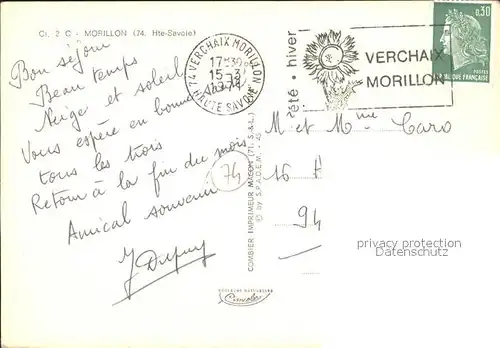 Cı. 2 C - MORILLON (74. Hte-Savoie)
Bon séjour
Beau temps
Neige et soleil
Vous espère en bonne santé
tous les trois
Retour à la fin du mois
Amical souvenir
J Dupuy
74 VERCHAIX MORILLON
17H30
15-3
HAUTE SAVOIE
été • hiver
VERCHAIX
MORILLON
0,30
POSTES
RÉPUBLIQUE FRANÇAISE
M et Mme Caro
16
94
74
COMBIER IMPRIMEUR MACON (71. S.-&-L.)
© by S.P.A.D.E.M.
Combier
privacy protection
Datenschutz